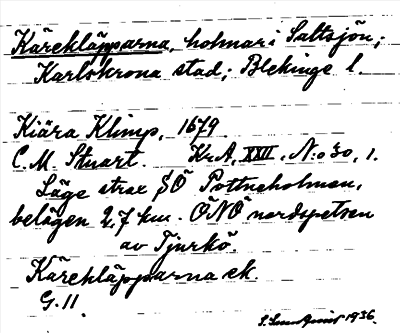 Kärekläpparna, holmar i Saltsjön;
Karlskrona stad; Blekinge l.
Kiära Klimp, 1679
C. M. Stuart. Kr.A, XXII, N:o 30, 1.
Läge strax SÖ Pottneholmen,
belägen 2,7 km. ÖNÖ nordspetsen
av Tjurkö.
Kärekläpparna ek.
G. 11
S. Lundquist 1936.